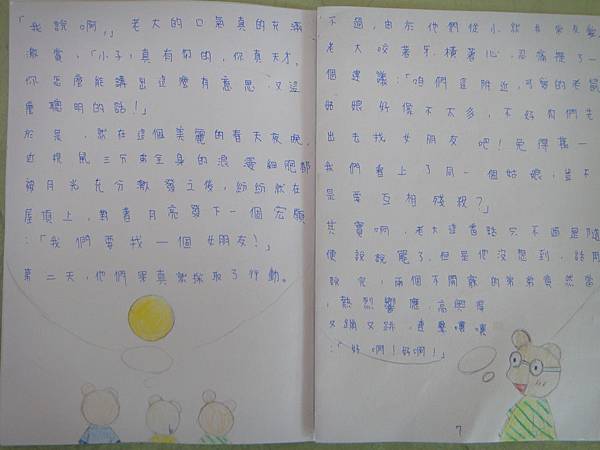 「我說啊,」老大的口氣真的充滿
激賞,「小子!真有你的,你真天才,
你怎麼能講出這麼有意思、又這
麼聰明的話!」
於是,就在這個美麗的春天夜晚,
近視鼠三兄弟全身的浪漫細胞都
被月光充分激發之後,紛紛就在
屋頂上,對著月亮發下一個宏願
:「我們要找一個女朋友!」
第二天,他們果真就採取了行動。
不過,由於他們從小就非常友愛,
老大咬著牙、橫著心,忍痛提了一
個建議:「咱們這附近,可愛的老鼠
姑娘好像不太多,不好有們先
出去找女朋友吧!免得萬一
我們看上了同一個姑娘,豈不
是要互相殘殺?」
其實啊,老大這番話只不過是隨
便說說罷了,但是他沒想到,話剛
說完,兩個不開竅的弟弟竟然當
,熱烈響應,高興得
又蹦又跳,連聲嚷嚷
:「好啊!好啊!」
7